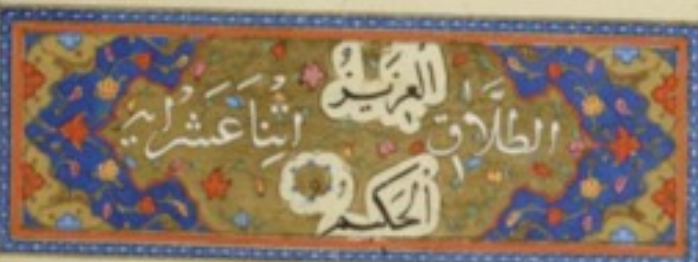 العَزِيزُ
الطَّلَاق اثْنَاعَشَر اية
الحَكِيمُ